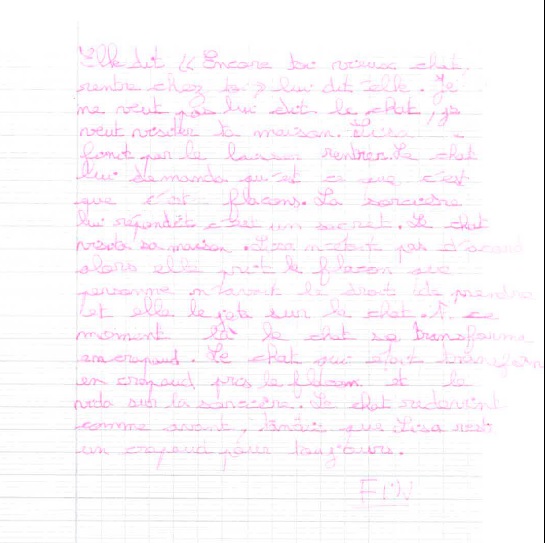 Elle dit « Encore toi vieux chat,
rentre chez toi » lui dit elle. Je
ne veut pas lui dit le chat, je
veut visiter ta maison. Lisa
par le laisser rentrer. Le chat
lui demanda qu'est ce que c'est
que c'est flacons. La sorcière
lui répondit c'est un secret. Le chat
visita sa maison. Lisa n'était pas d'acord
alors elle prit le flacon que
personne n'avait le droit de prendre
et elle le jeta sur le chat. A ce
moment là le chat se transforma
en crapaud. Le chat qui était transform
en crapaud pris le flacon et le
jeta sur la sorcière. Le chat redevint
comme avant, tandis que Lisa resta
un crapaud pour toujours.
FIN